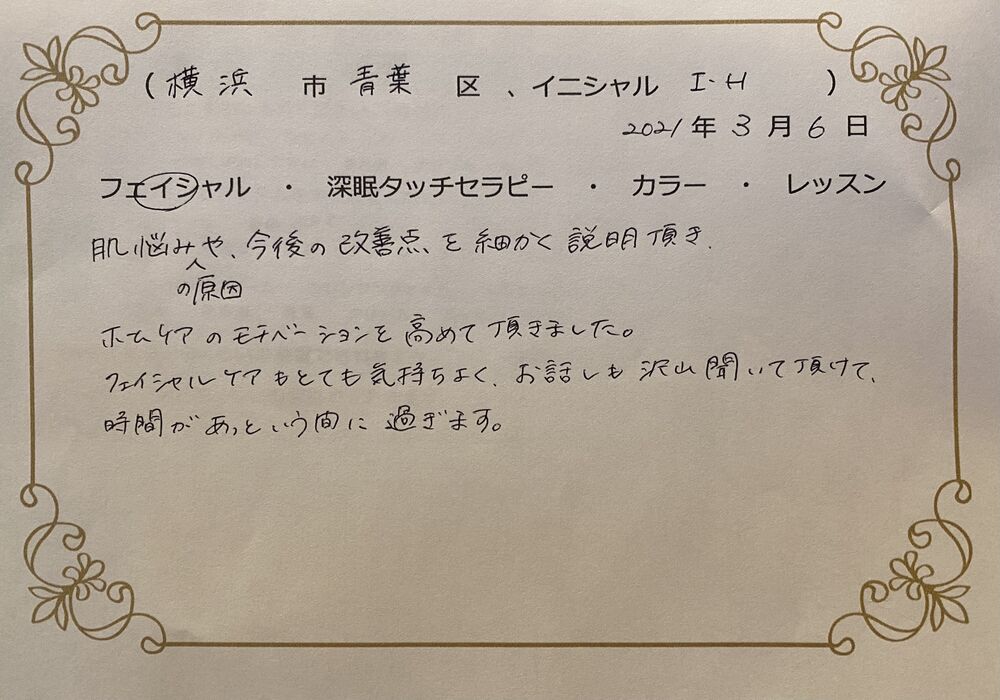 (横浜 市 青葉 区、イニシャル I・H )
2021年 3月 6日
フェイシャル ・ 深眠タッチセラピー ・ カラー ・ レッスン
肌悩みや、今後の改善点を細かく説明頂き、
の原因
ホームケアのモチベーションを高めて頂きました。
フェイシャルケアもとても気持ちよく、お話しも沢山聞いて頂けて、
時間があっという間に過ぎます。